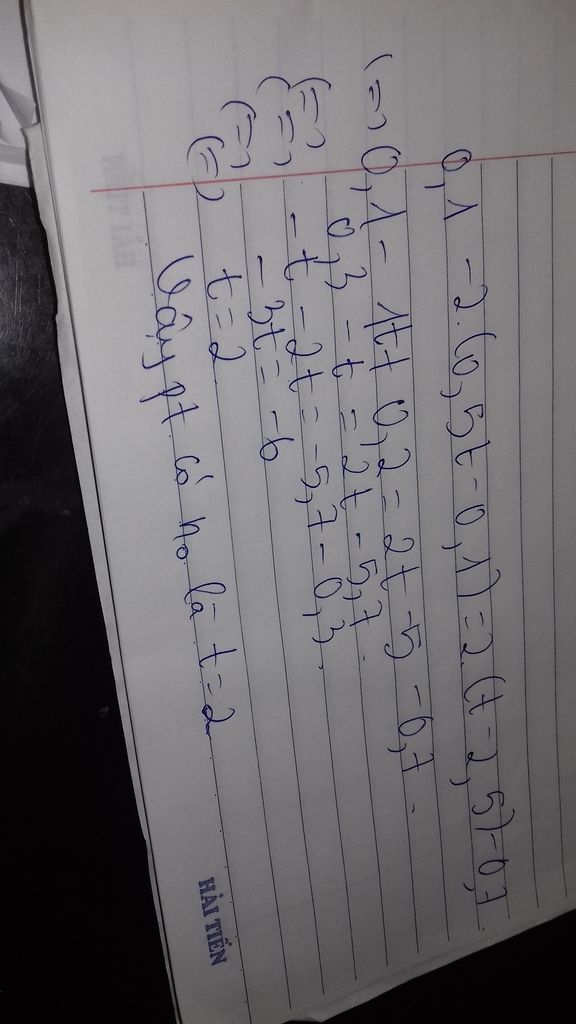 0,1 - 2.(0,5t - 0,1) = 2.(t - 2,5) - 0,7
(=) 0,1 - 1t + 0,2 = 2t - 5 - 0,7.
(=) 0,3 - t = 2t - 5,7.
(=) - t - 2t = -5,7 - 0,3.
(=) - 3t = - 6
(=) t = 2
Vậy pt có no là t = 2
HẢI TIẾN